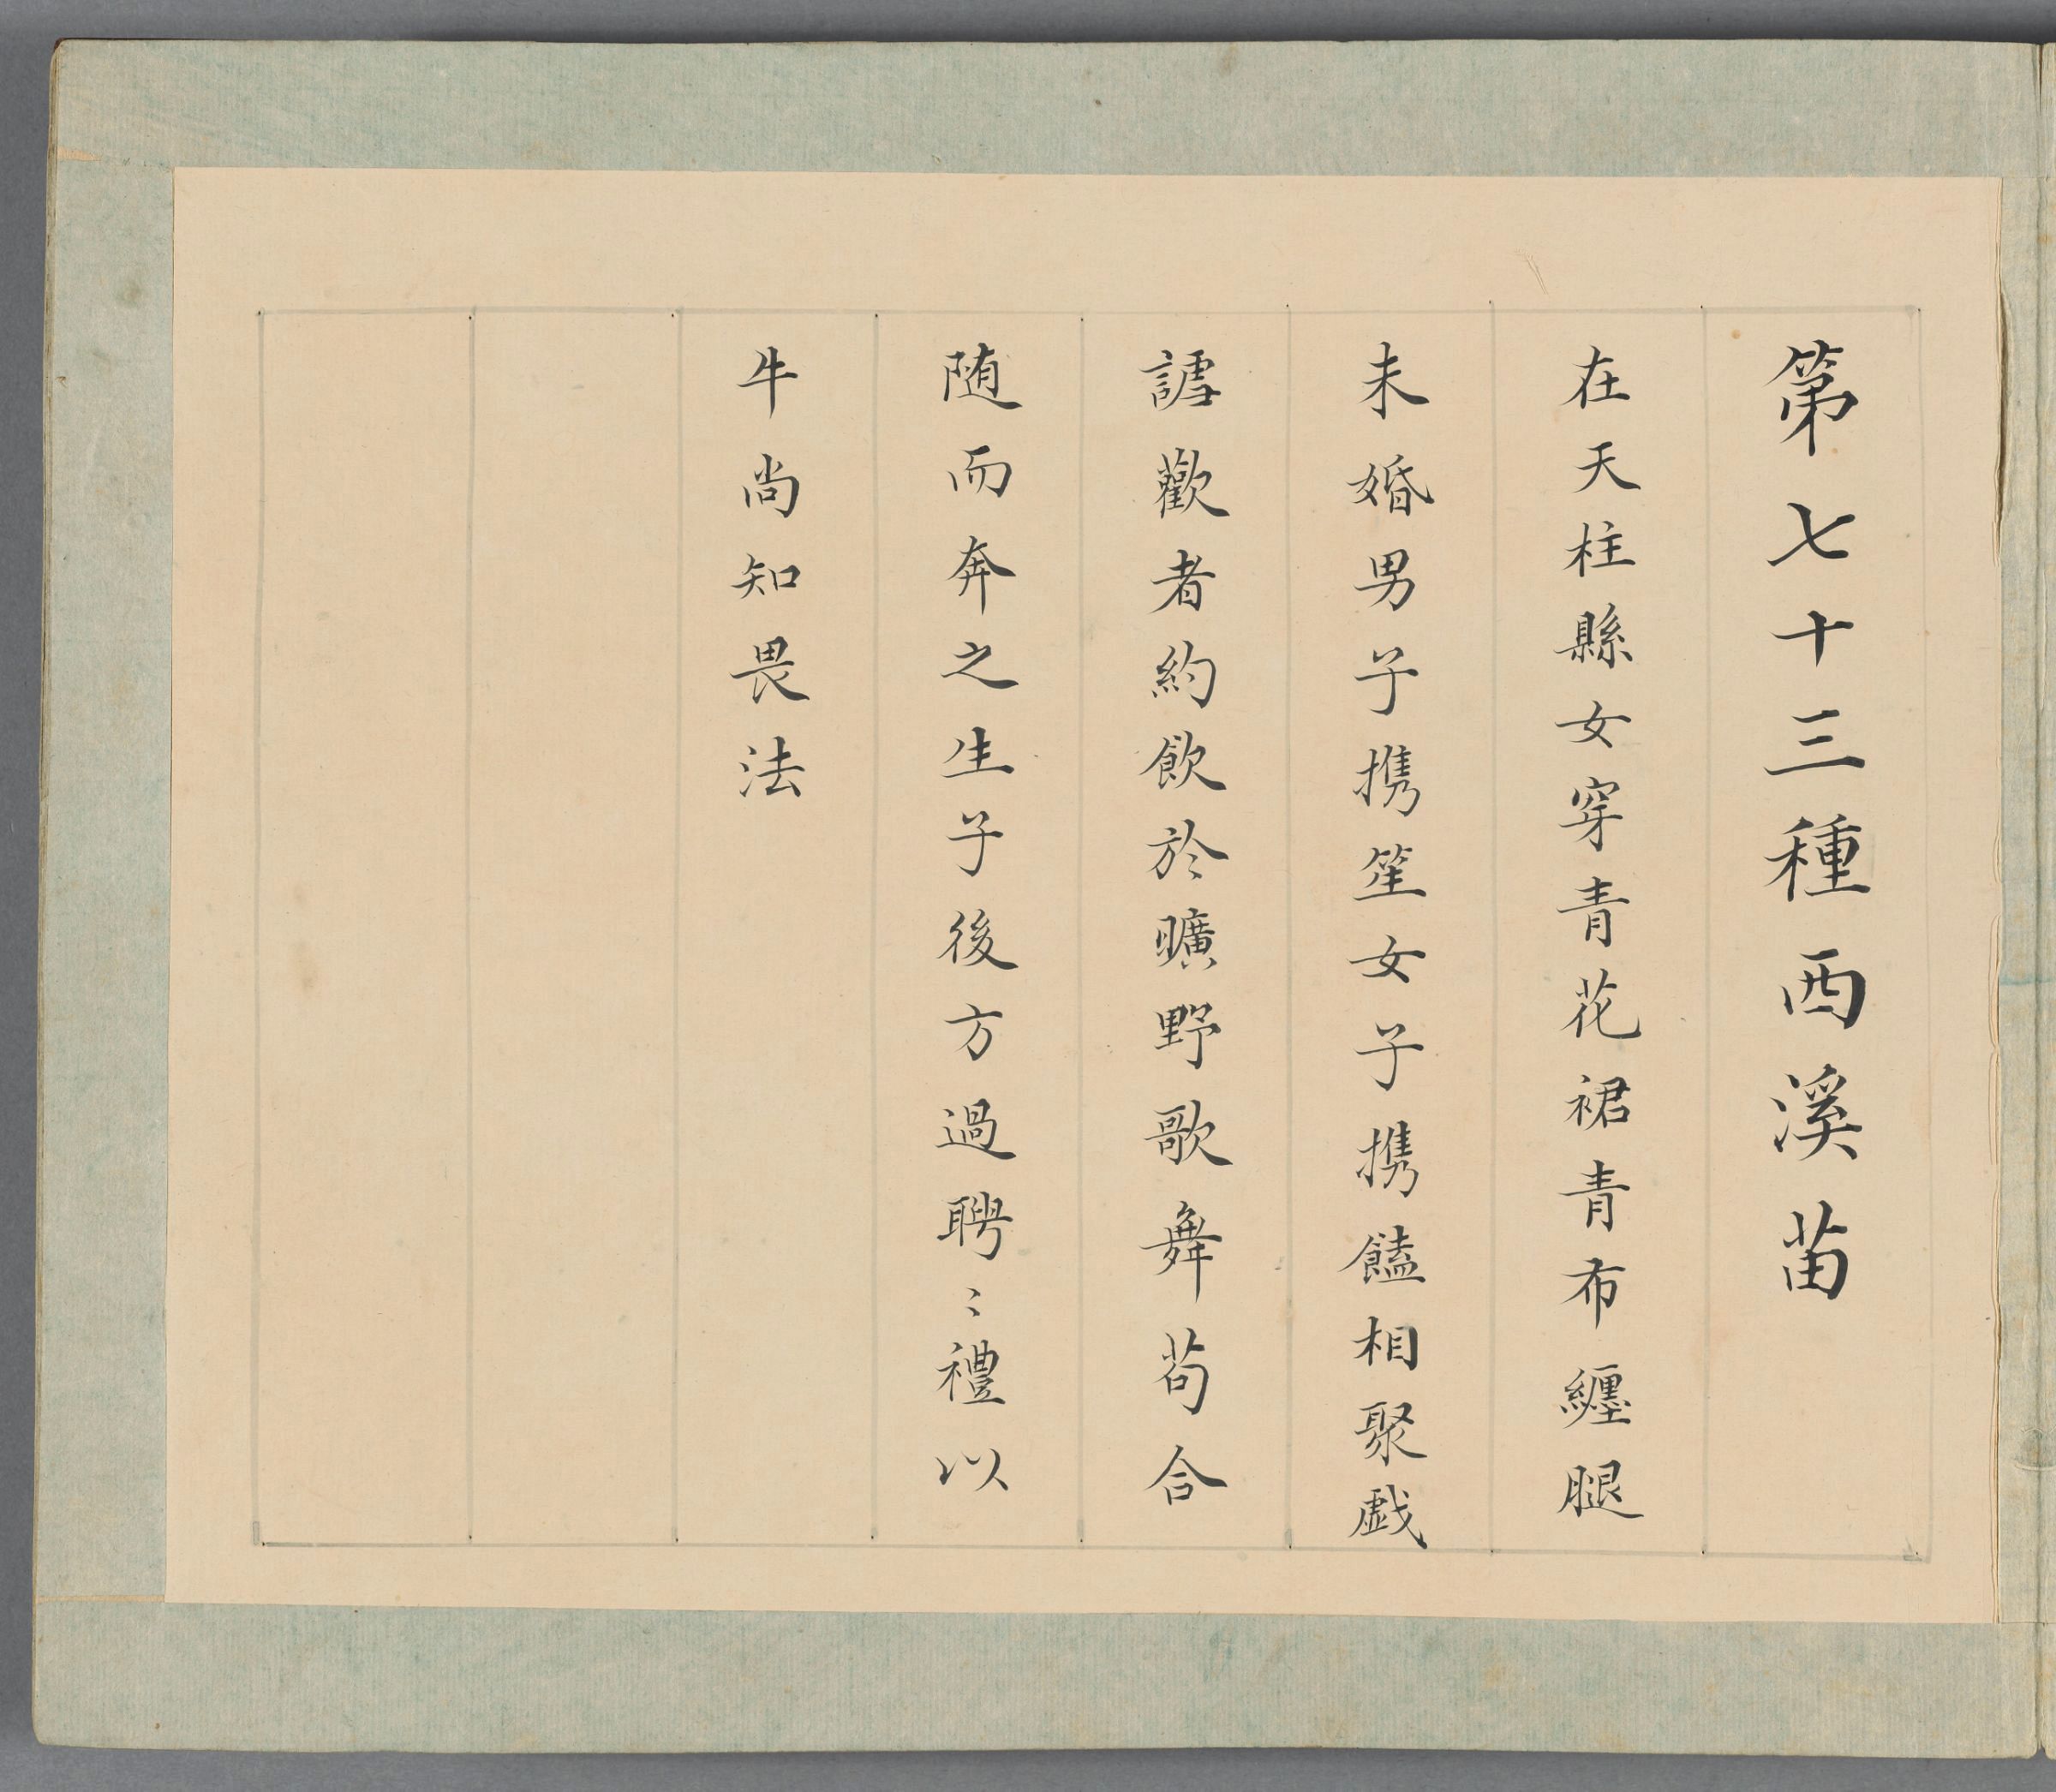 第七十三種西溪苗
在天柱縣女穿青花裙青布纏腿
未婚男子携笙女子携饁相聚戯
謔歡者約飲於曠野歌舞苟合
随而奔之生子後方過聘〻禮以
牛尚知畏法